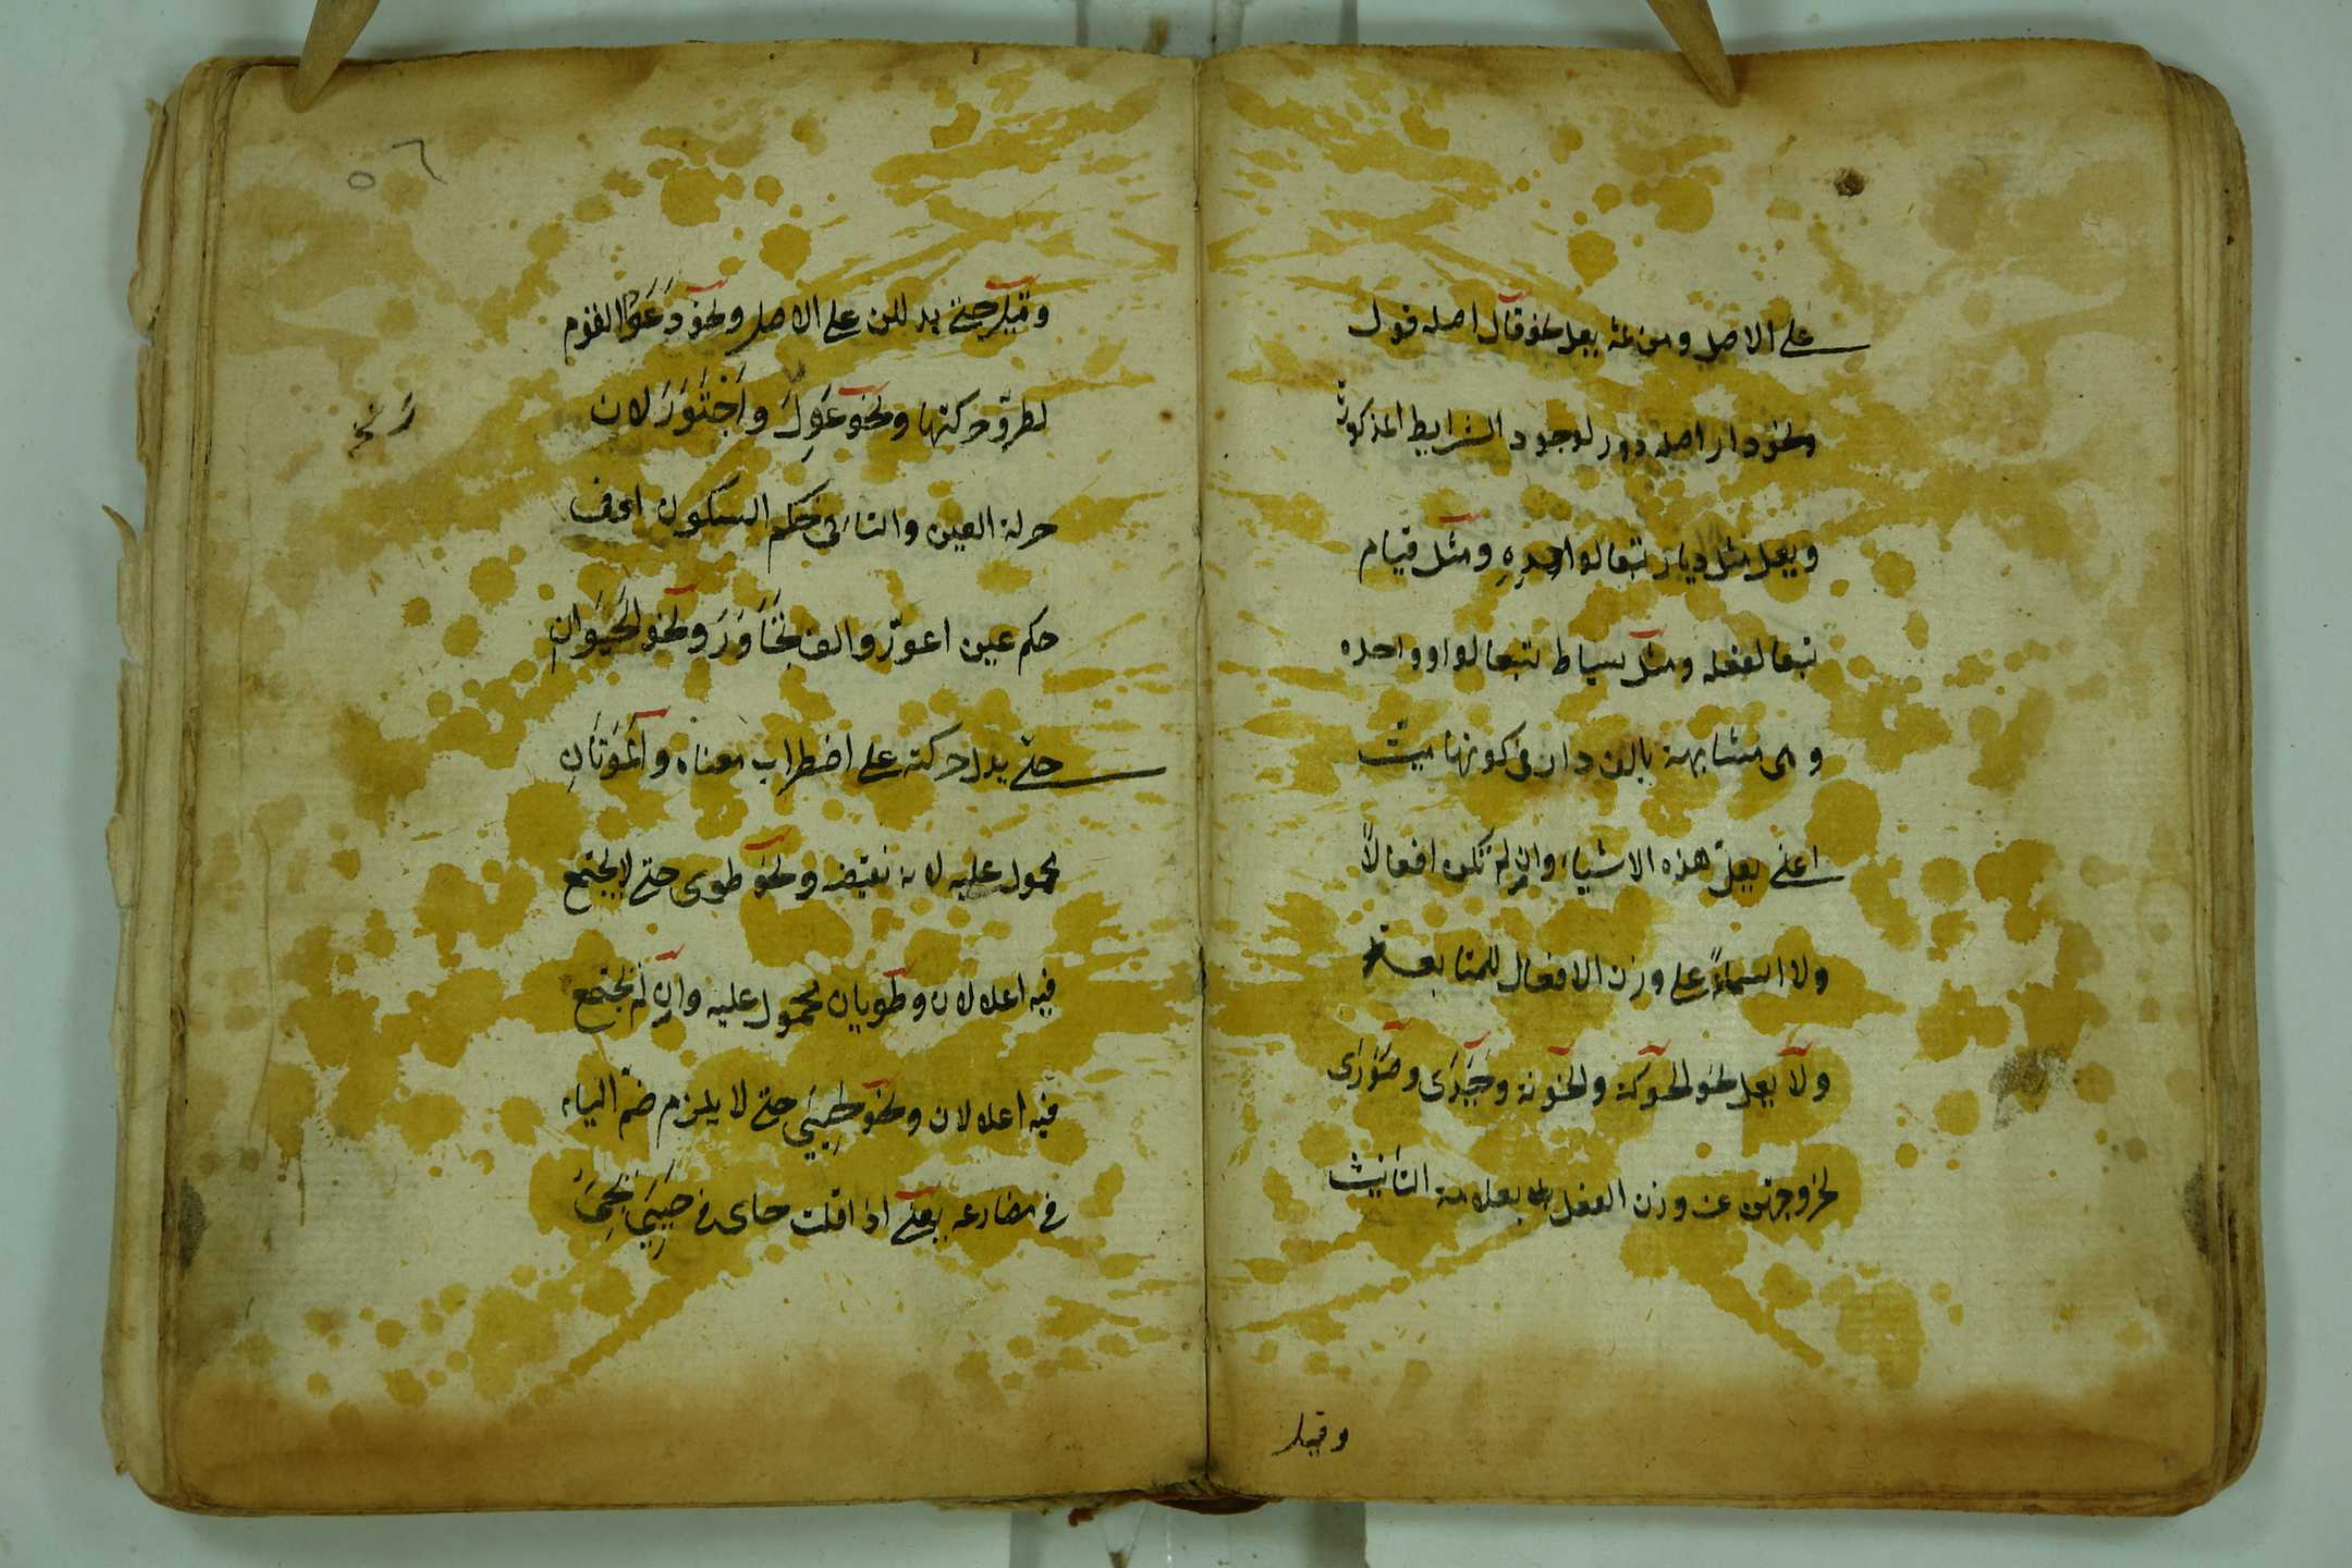 على الاصل ومن ثمه يعل نحو قال اصله قول
ونحو دار اصله دور لوجود الشرايط المذكورة
ويعل مثل ديار تبعا لواحده ومثل قيام
تبعا لفعله ومثل سياط تبعا لواو واحده
وهى مشابهة بالف دار فى كونها ميت
اعنى يعلّ هذه الاشياء وان لم تكن افعالاً
ولا اسماءً على وزن الافعال للمتابعة
ولا يعل نحو الحوكة والخونة وحَيَدَى وصَوَرَى
لخروجهن عن وزن الفعل بعلامة التأنيث
وقيل
٥٦
وقيل حتى يدللن على الاصل ونحو دَعَوُا القوم
لطروّ حركتها ونحو عَوِرَ واجْتَوَرَ لان
حركة العين والتاء فى حكم السكون اى فى
حكم عين اعورّ والف تَجَاوَرَ ونحو الحَيَوَانِ
حتى يدل حركته على اضطراب معناه والمَوَتَانِ
محمول عليه لانه نقيضه ونحو طوى حتى لا يجتمع
فيه اعلالان وطويان محمول عليه وان لم يجتمع
فيه اعلالان ونحو حَيِيَ حتى لا يلزم ضمّ الياء
فى مضارعه يعنى اذا قلت حاى فى حَيِيَ يجىء